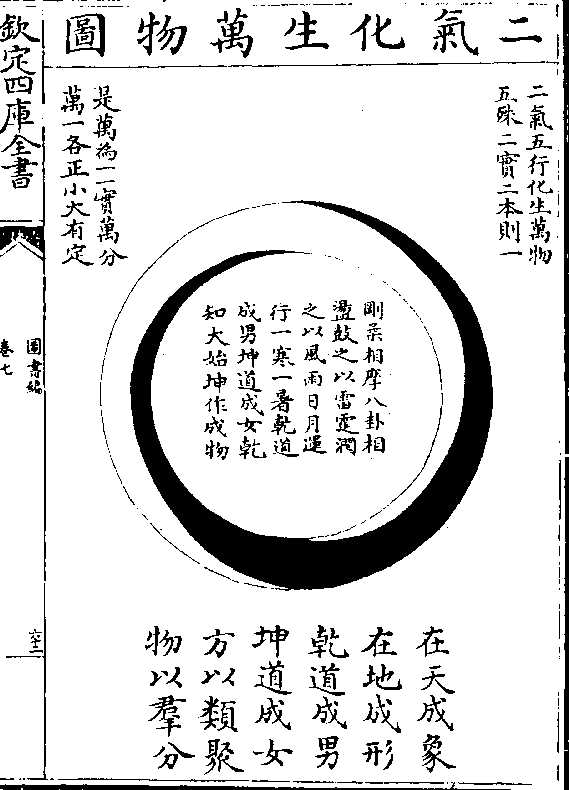 二氣化生萬物圖
二氣五行化生萬物
五殊二實二本則一
是萬為一一實萬分
萬一各正小大有定
剛柔相摩八卦相
盪鼓之以雷霆潤
之以風雨日月運
行一寒一暑乾道
成男坤道成女乾
知大始坤作成物
在天成象
在地成形
乾道成男
坤道成女
方以類聚
物以羣分
欽定四庫全書
圖書編
卷七
六十二